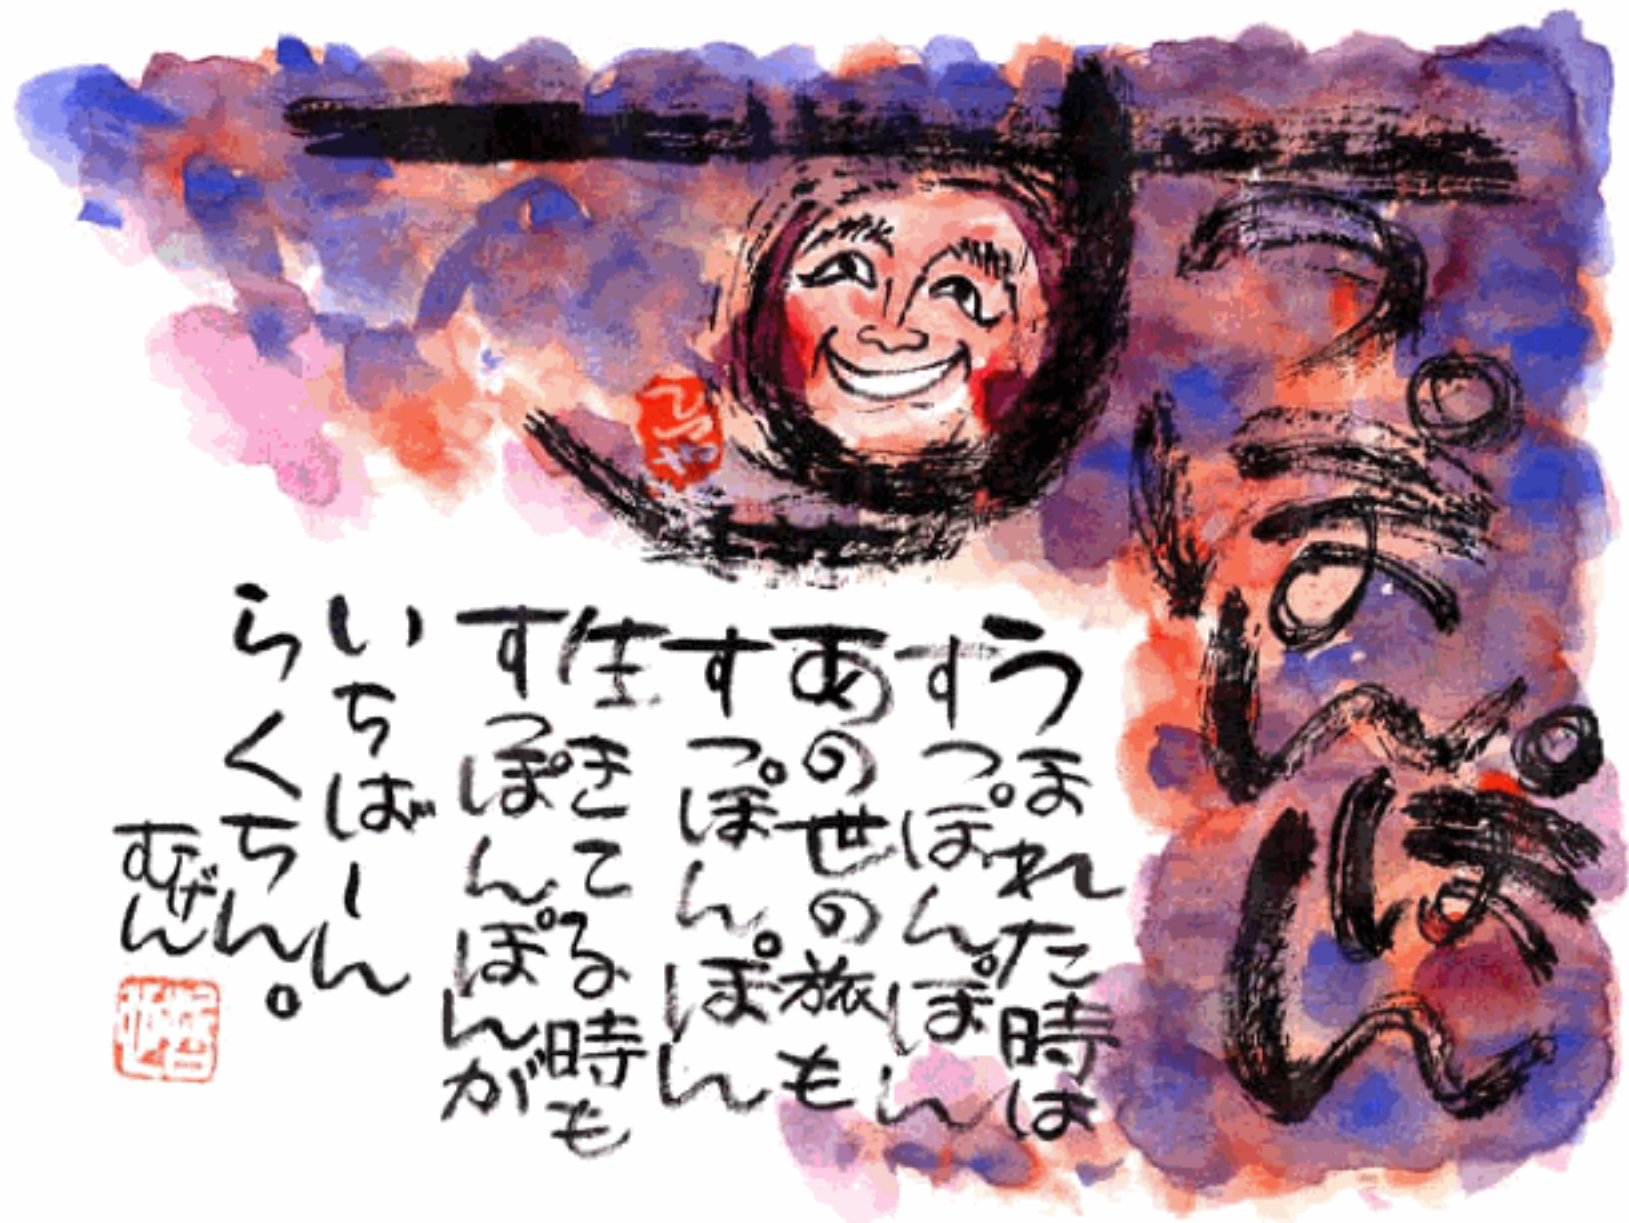 すっぽんぽん
うまれた時は
すっぽんぽん
あの世の旅も
すっぽんぽん
生きてる時も
すっぽんぽんが
いちばーん
らくちん。
むげん